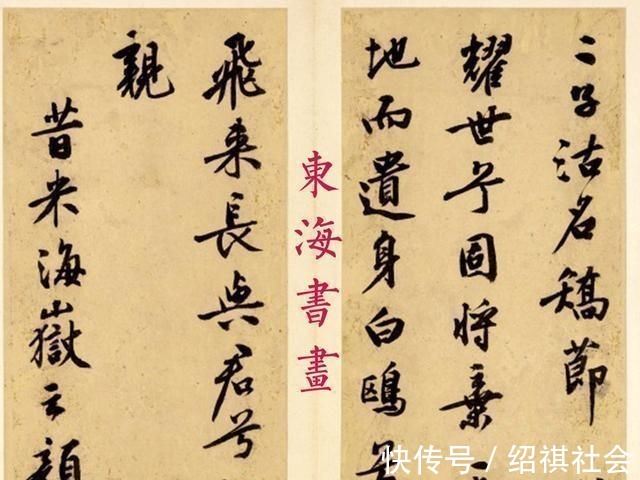 二子沽名矯節
耀世兮固將棄
地而遺身白鷗兮
東海書畫
飛來長與君兮
親
昔米海嶽云顏
快传号 / 绍祺社会